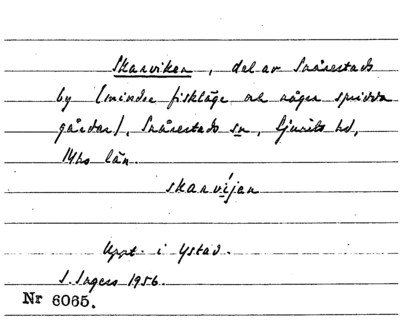 Skarviken, del av Snårestads
by (mindre fiskläge och några spridda
gårdar), Snårestads sn, Ljunits hd,
Mhs län.
skarvijen
Uppt. i Ystad.
S. Ingers 1956.
Nr 6065.